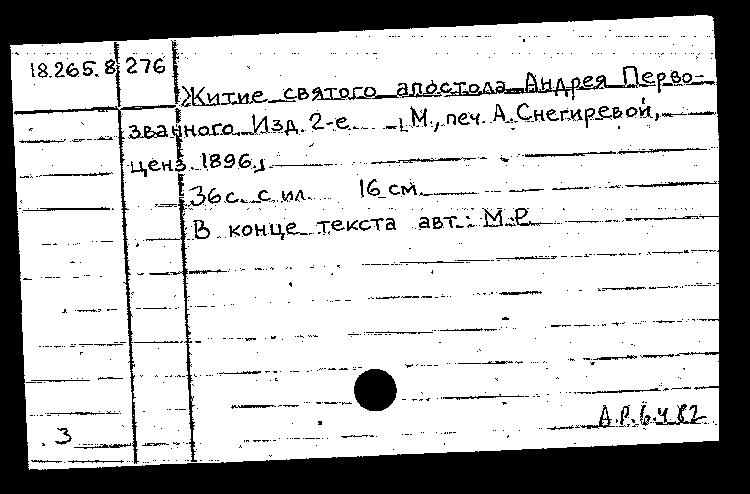 18.265.8 276
Житие святого апостола Андрея Перво-
званного Изд. 2-е М., печ. А. Снегиревой,
ценз. 1896.
36 с. с ил. 16 см.
В конце текста авт.: М.Р.
3
А.Р. 6.4.82